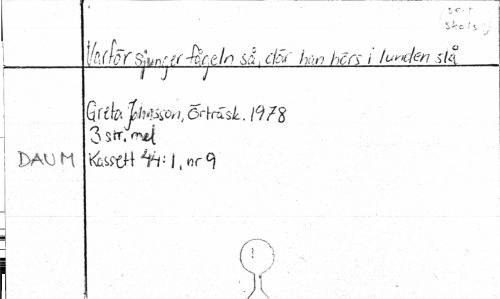 Varför sjunger fågeln så, där han hörs i lunden slå
Greta Johnsson, Örträsk. 1978
3 str. mel
DAUM Kassett 44:1, nr 9
!